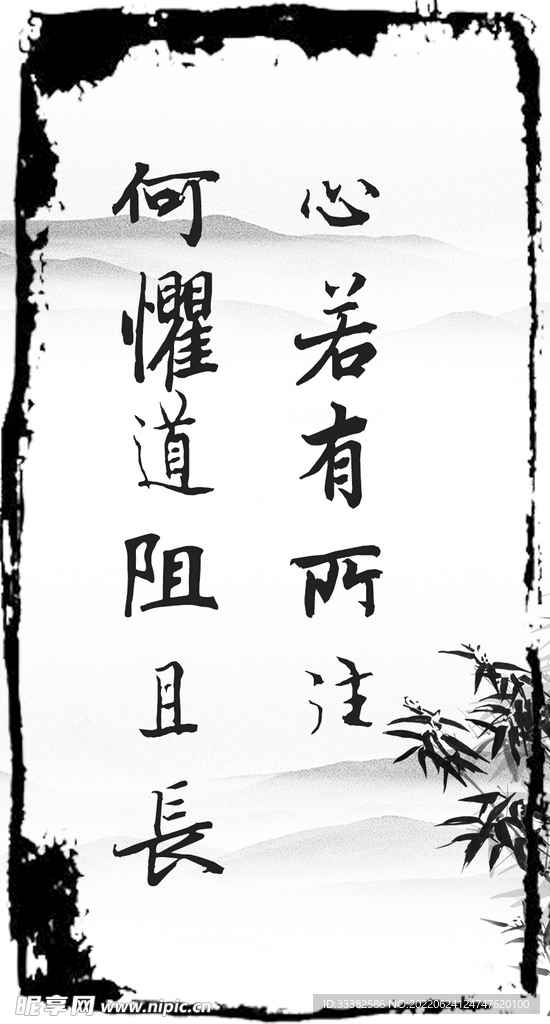 心若有所注
何懼道阻且長
昵享网 www.nipic.cn
ID:33382586 NO:20220624124747620100